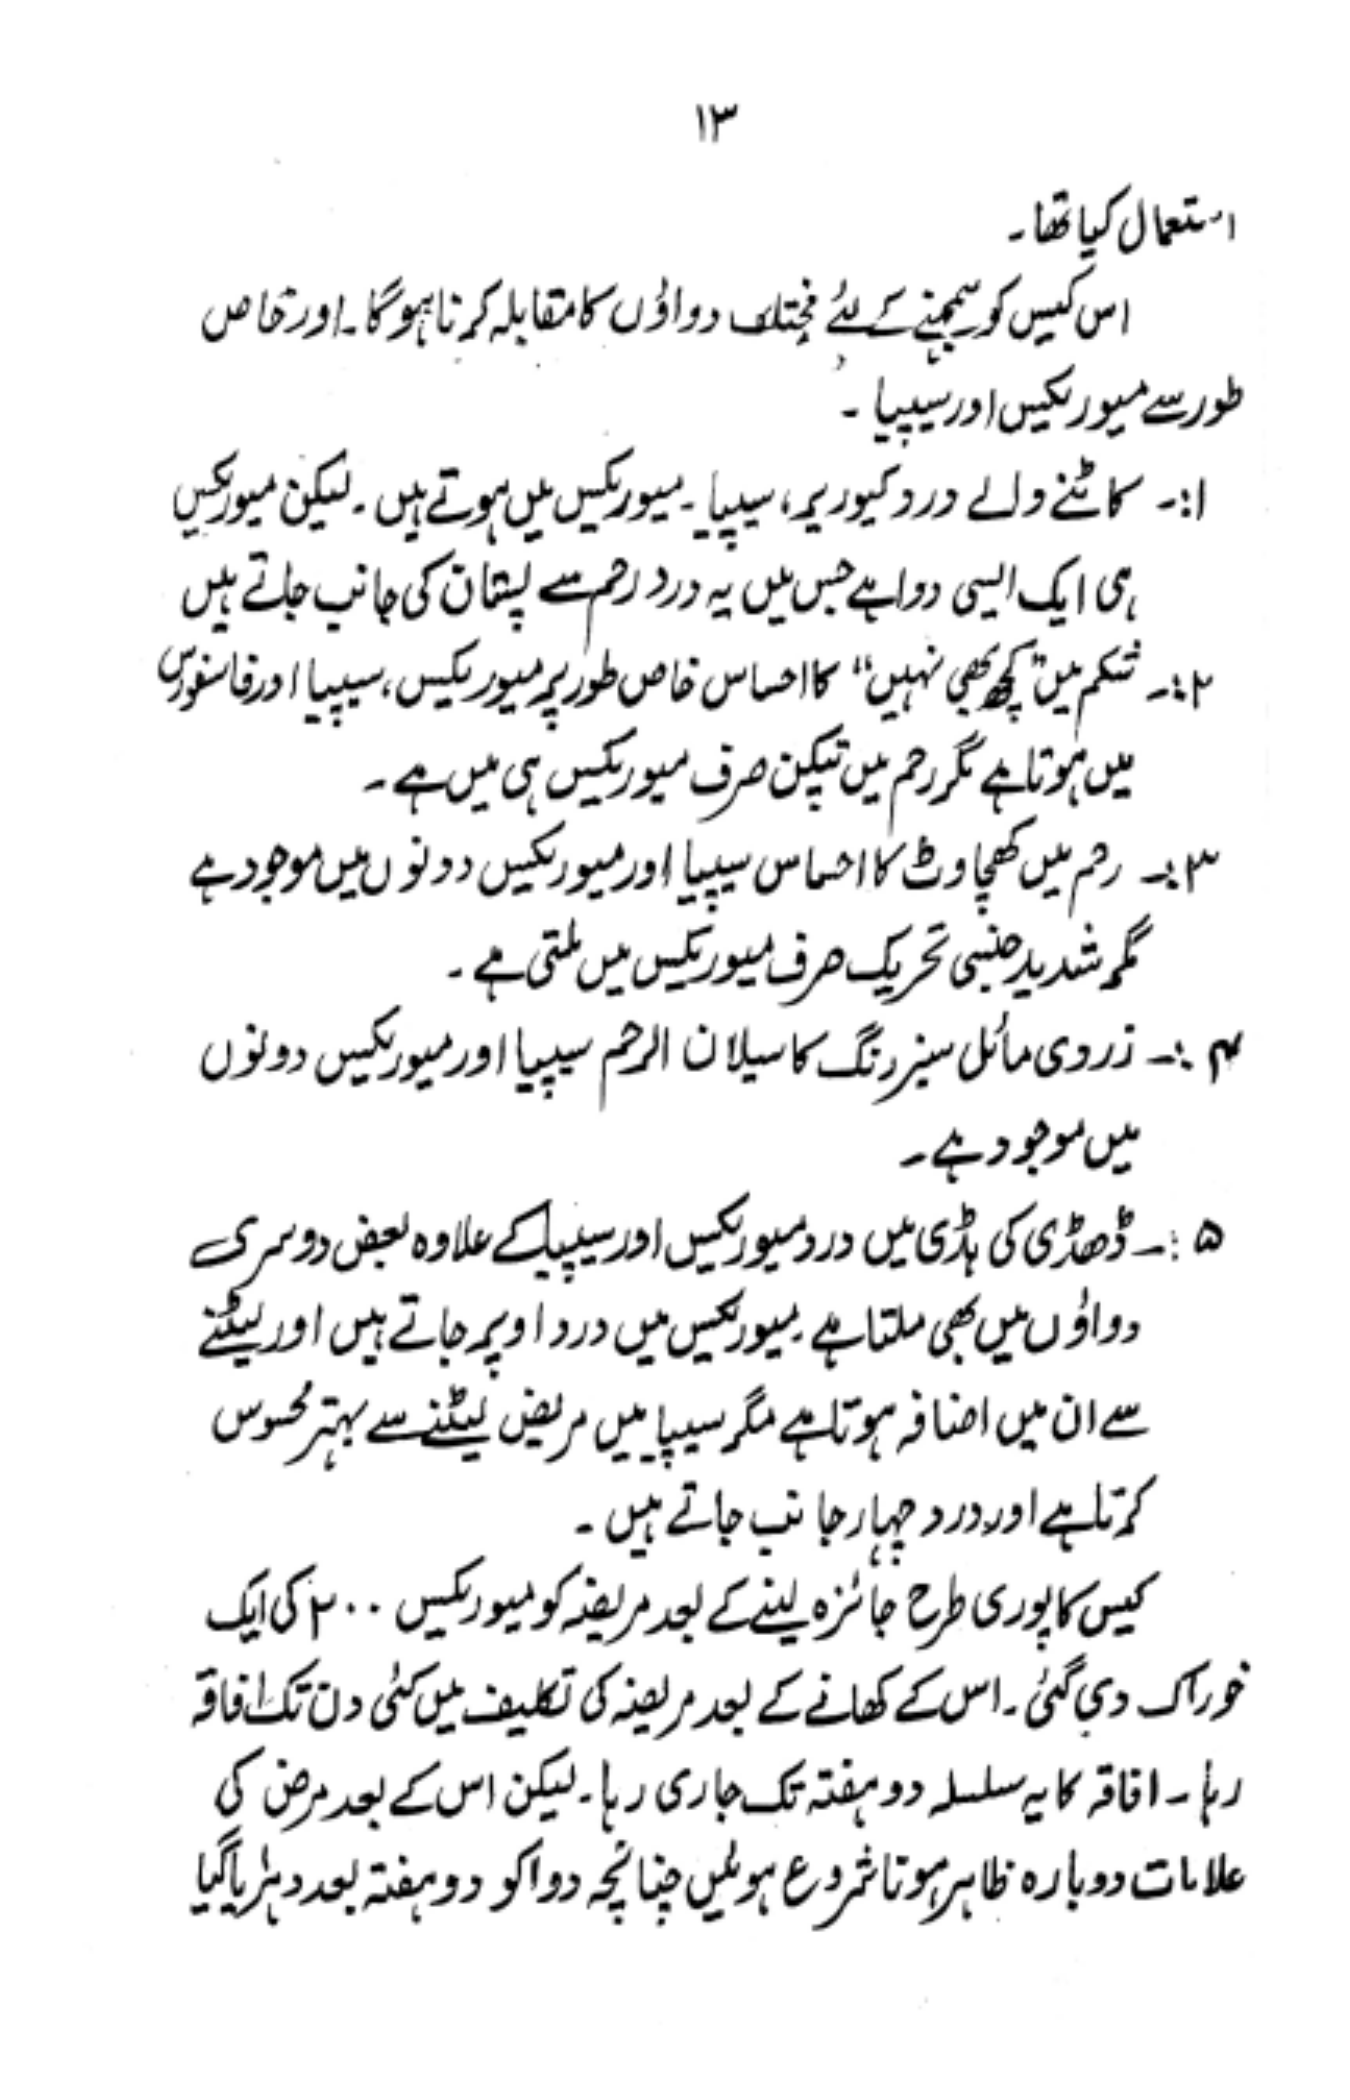 ۱۳
استعمال کیا تھا۔
اس کیس کو سمجھنے کے لئے مختلف دواؤں کا مقابلہ کرنا ہوگا۔ اور خاص
طور سے میوریکس اور سیپیا ۔
۱:۔ کاٹنے والے درد کیوریر، سیپیا ۔ میوریکس میں ہوتے ہیں ۔ لیکن میوریکس
ہی ایک ایسی دوا ہے جس میں یہ درد رحم سے پستان کی جانب جاتے ہیں
۲:۔ شکم میں "کچھ بھی نہیں" کا احساس خاص طور پر میوریکس، سیپیا اور فاسفورس
میں ہوتا ہے مگر رحم میں تپکن صرف میوریکس ہی میں ہے ۔
۳:۔ رحم میں کھچاوٹ کا احساس سیپیا اور میوریکس دونوں میں موجود ہے
مگر شدید جنسی تحریک صرف میوریکس میں ملتی ہے ۔
۴:۔ زردی مائل سبز رنگ کا سیلان الرحم سیپیا اور میوریکس دونوں
میں موجود ہے ۔
۵:۔ ڈھڈی کی ہڈی میں درد میوریکس اور سیپیا کے علاوہ بعض دوسری
دواؤں میں بھی ملتا ہے ۔ میوریکس میں درد اوپر جاتے ہیں اور لیٹنے
سے ان میں اضافہ ہوتا ہے مگر سیپیا میں مریض لیٹنے سے بہتر محسوس
کرتا ہے اور درد چہار جانب جاتے ہیں ۔
کیس کا پوری طرح جائزہ لینے کے بعد مریضہ کو میوریکس ۲۰۰ کی ایک
خوراک دی گئی ۔ اس کے کھانے کے بعد مریضہ کی تکلیف میں کئی دن تک افاقہ
رہا ۔ افاقہ کا یہ سلسلہ دو ہفتہ تک جاری رہا ۔ لیکن اس کے بعد مرض کی
علامات دوبارہ ظاہر ہونا شروع ہوئیں چنانچہ دوا کو دو ہفتہ بعد دہرایا گیا